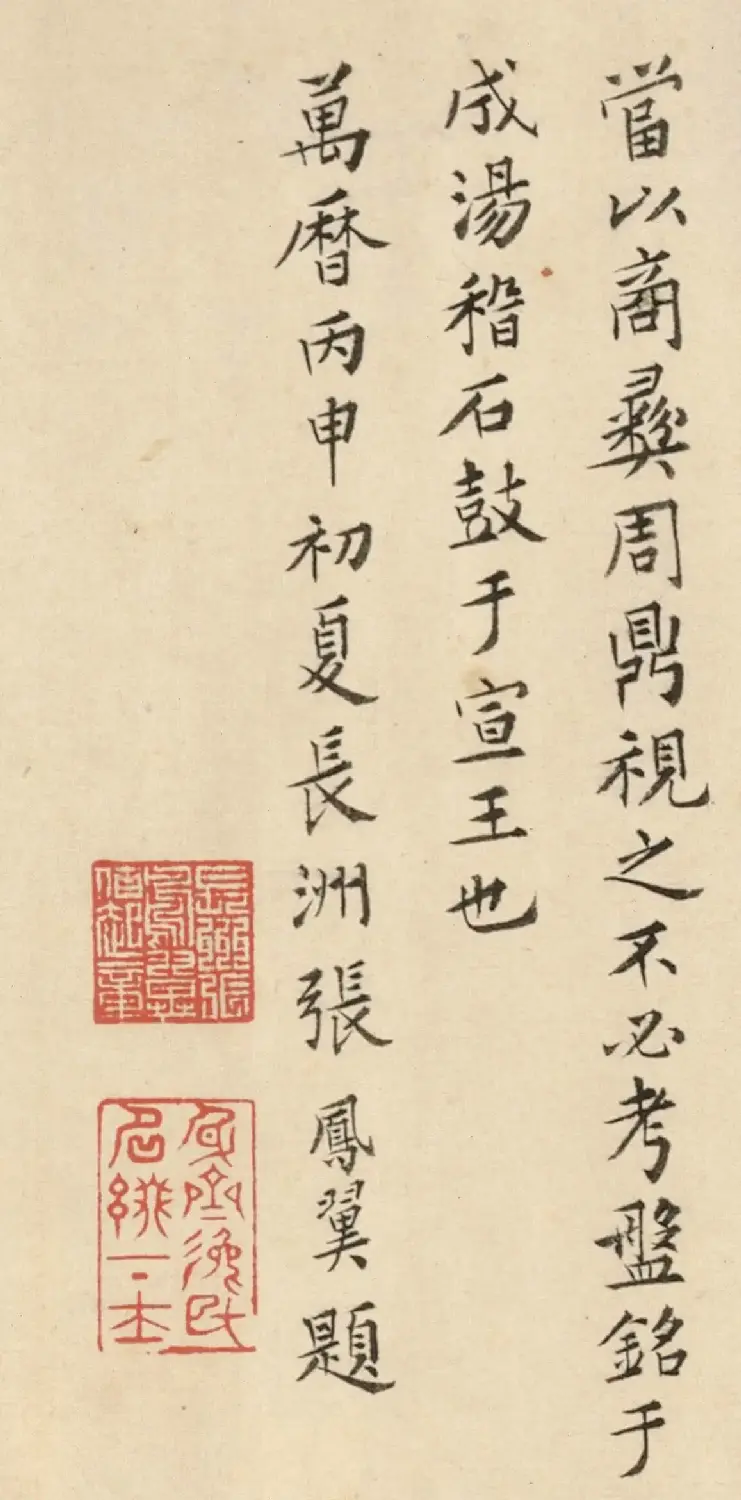 當以商彝周鼎視之不必考盤銘于
成湯稽石鼓于宣王也
萬曆丙申初夏長洲張鳳翼題